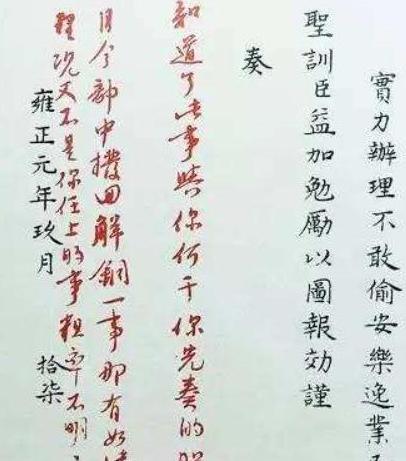 實力辦理不敢偷安樂逸業
聖訓臣益加勉勵以圖報効謹
奏
知道了此事與你何干你先奏的
目今部中撥回解銅一事那有如
理況又不是你任上的事粗率不明
雍正元年玖月 拾柒